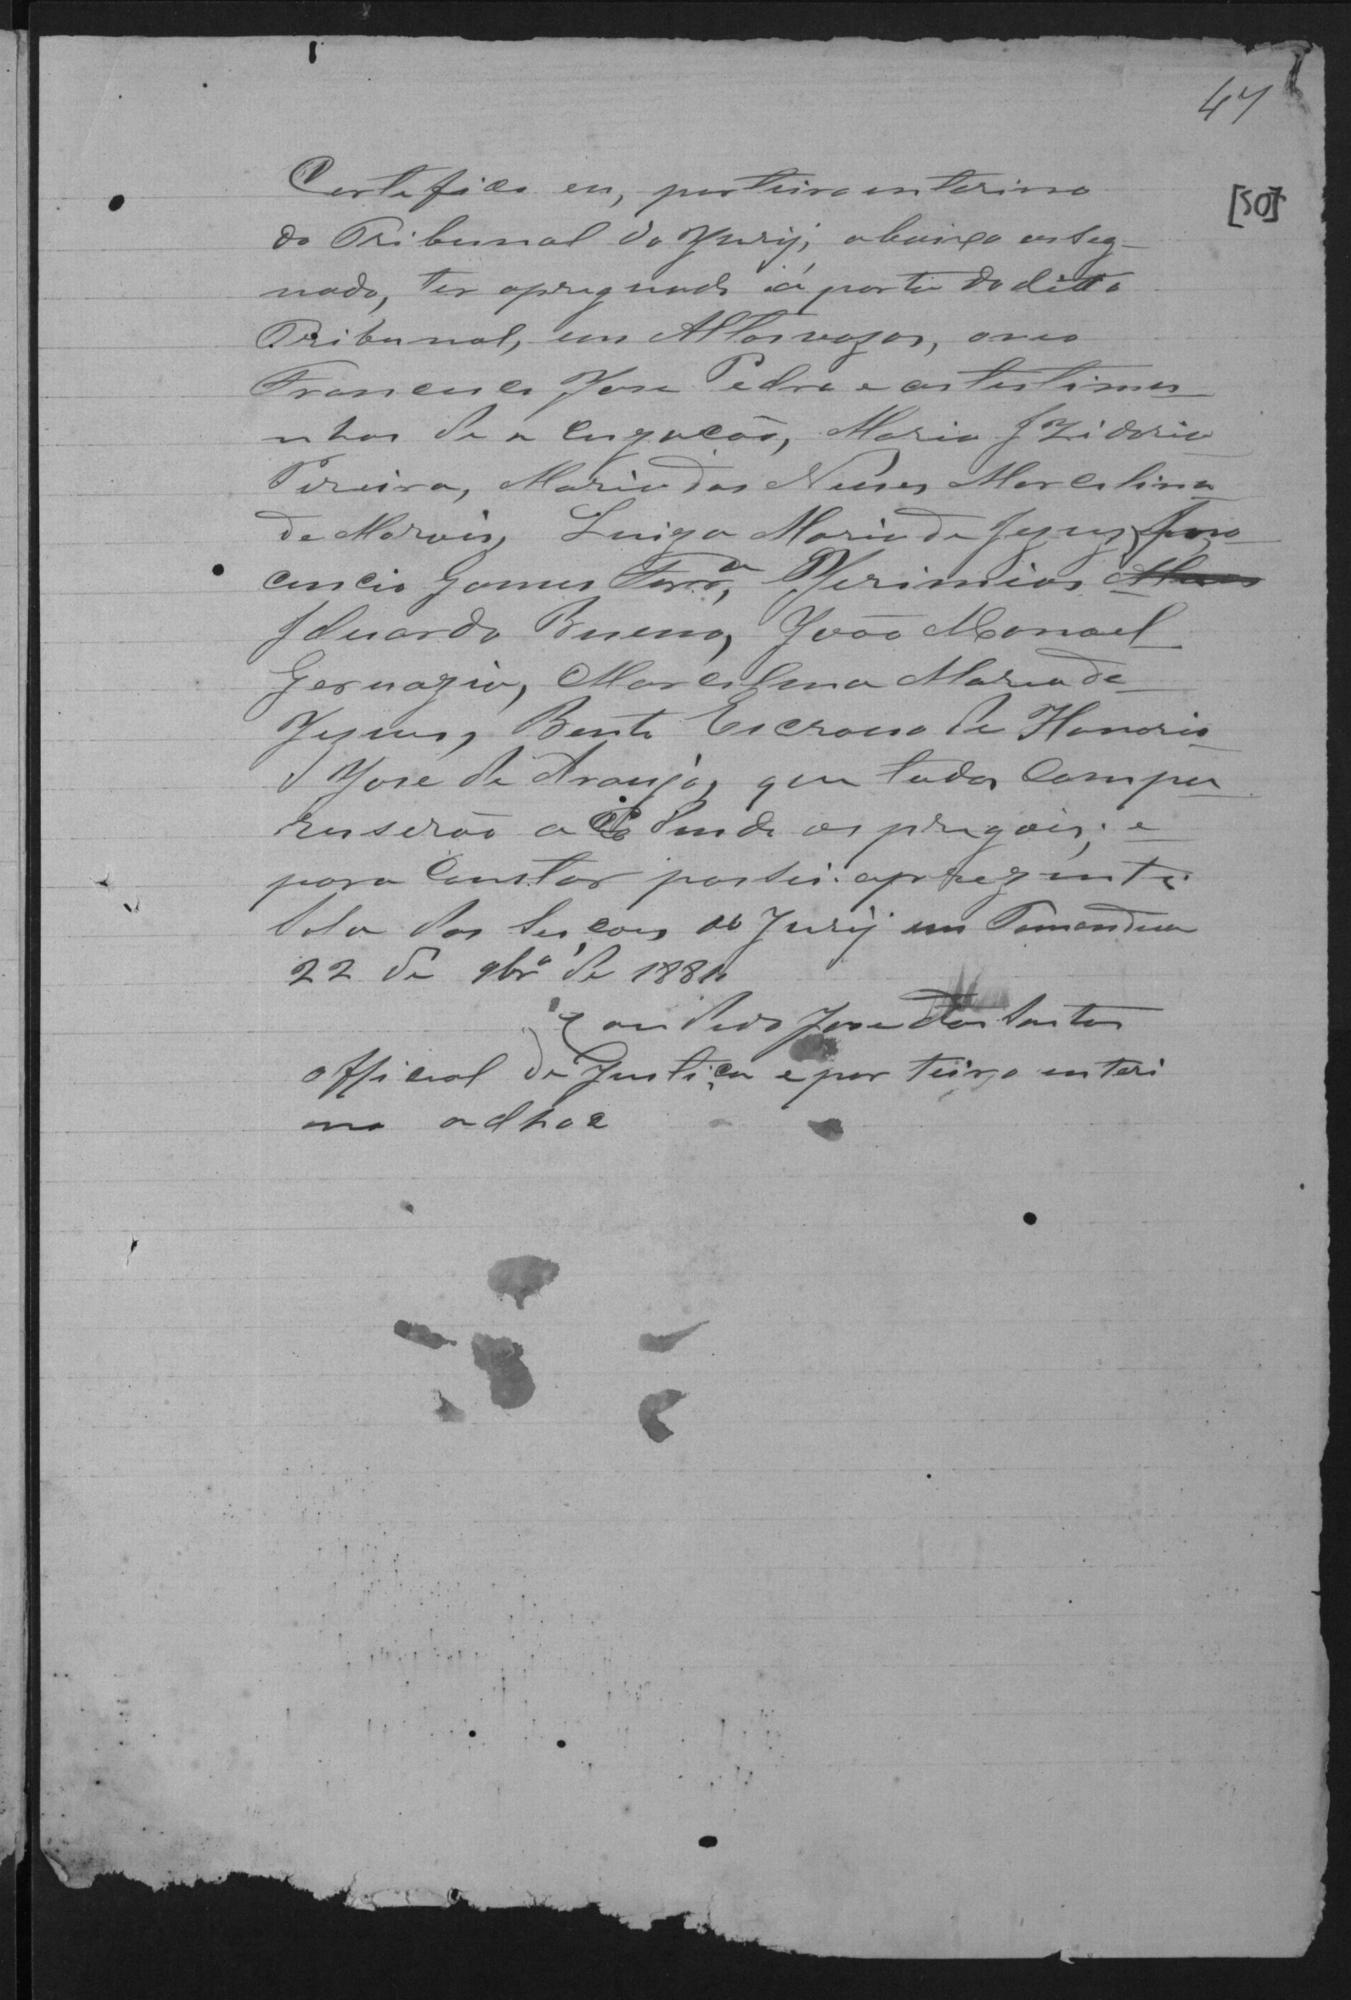 47
[50]
Certefico eu, porteiro enterino
do Tribunal do Jury, abaixo asseg-
nado, ter apreguado á porta do ditto
Tribunal, em Altas vozes, o reo
Francisco Jose Pedro e as testimu
nhas de a cuzacão, Maria Izidoria
Pireira, Maria das Neves Marcelina
de Morais, Luiza Maria de Jezuz, Inno
cencio Gomes Ferrª, Jerimias
Eduardo Bueno, João Manoel
Gervazio, Marcelina Maria de
Jezus, Bento Escravo de Honorio
Jose de Araujo, que todos Compa
reserão a os pregois; e
para Constar passei a prezente.
Sala das Seçoes do Jury em Tamandua
22 de 9brº de 1884
Candido Jose dos Santos
official de Justiça e porteiro enteri
no adhoc